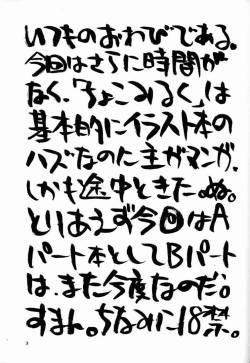 いつものおわびである。
今回はさらに時間が
なく、「ちょこみるく」は
基本的にイラスト本の
ハズなのに主がマンガ、
しかも途中ときた。ぬ。
とりあえず今回はA
パート本としてBパート
は、また今度なのだ。
すまん。ちなみに18禁。